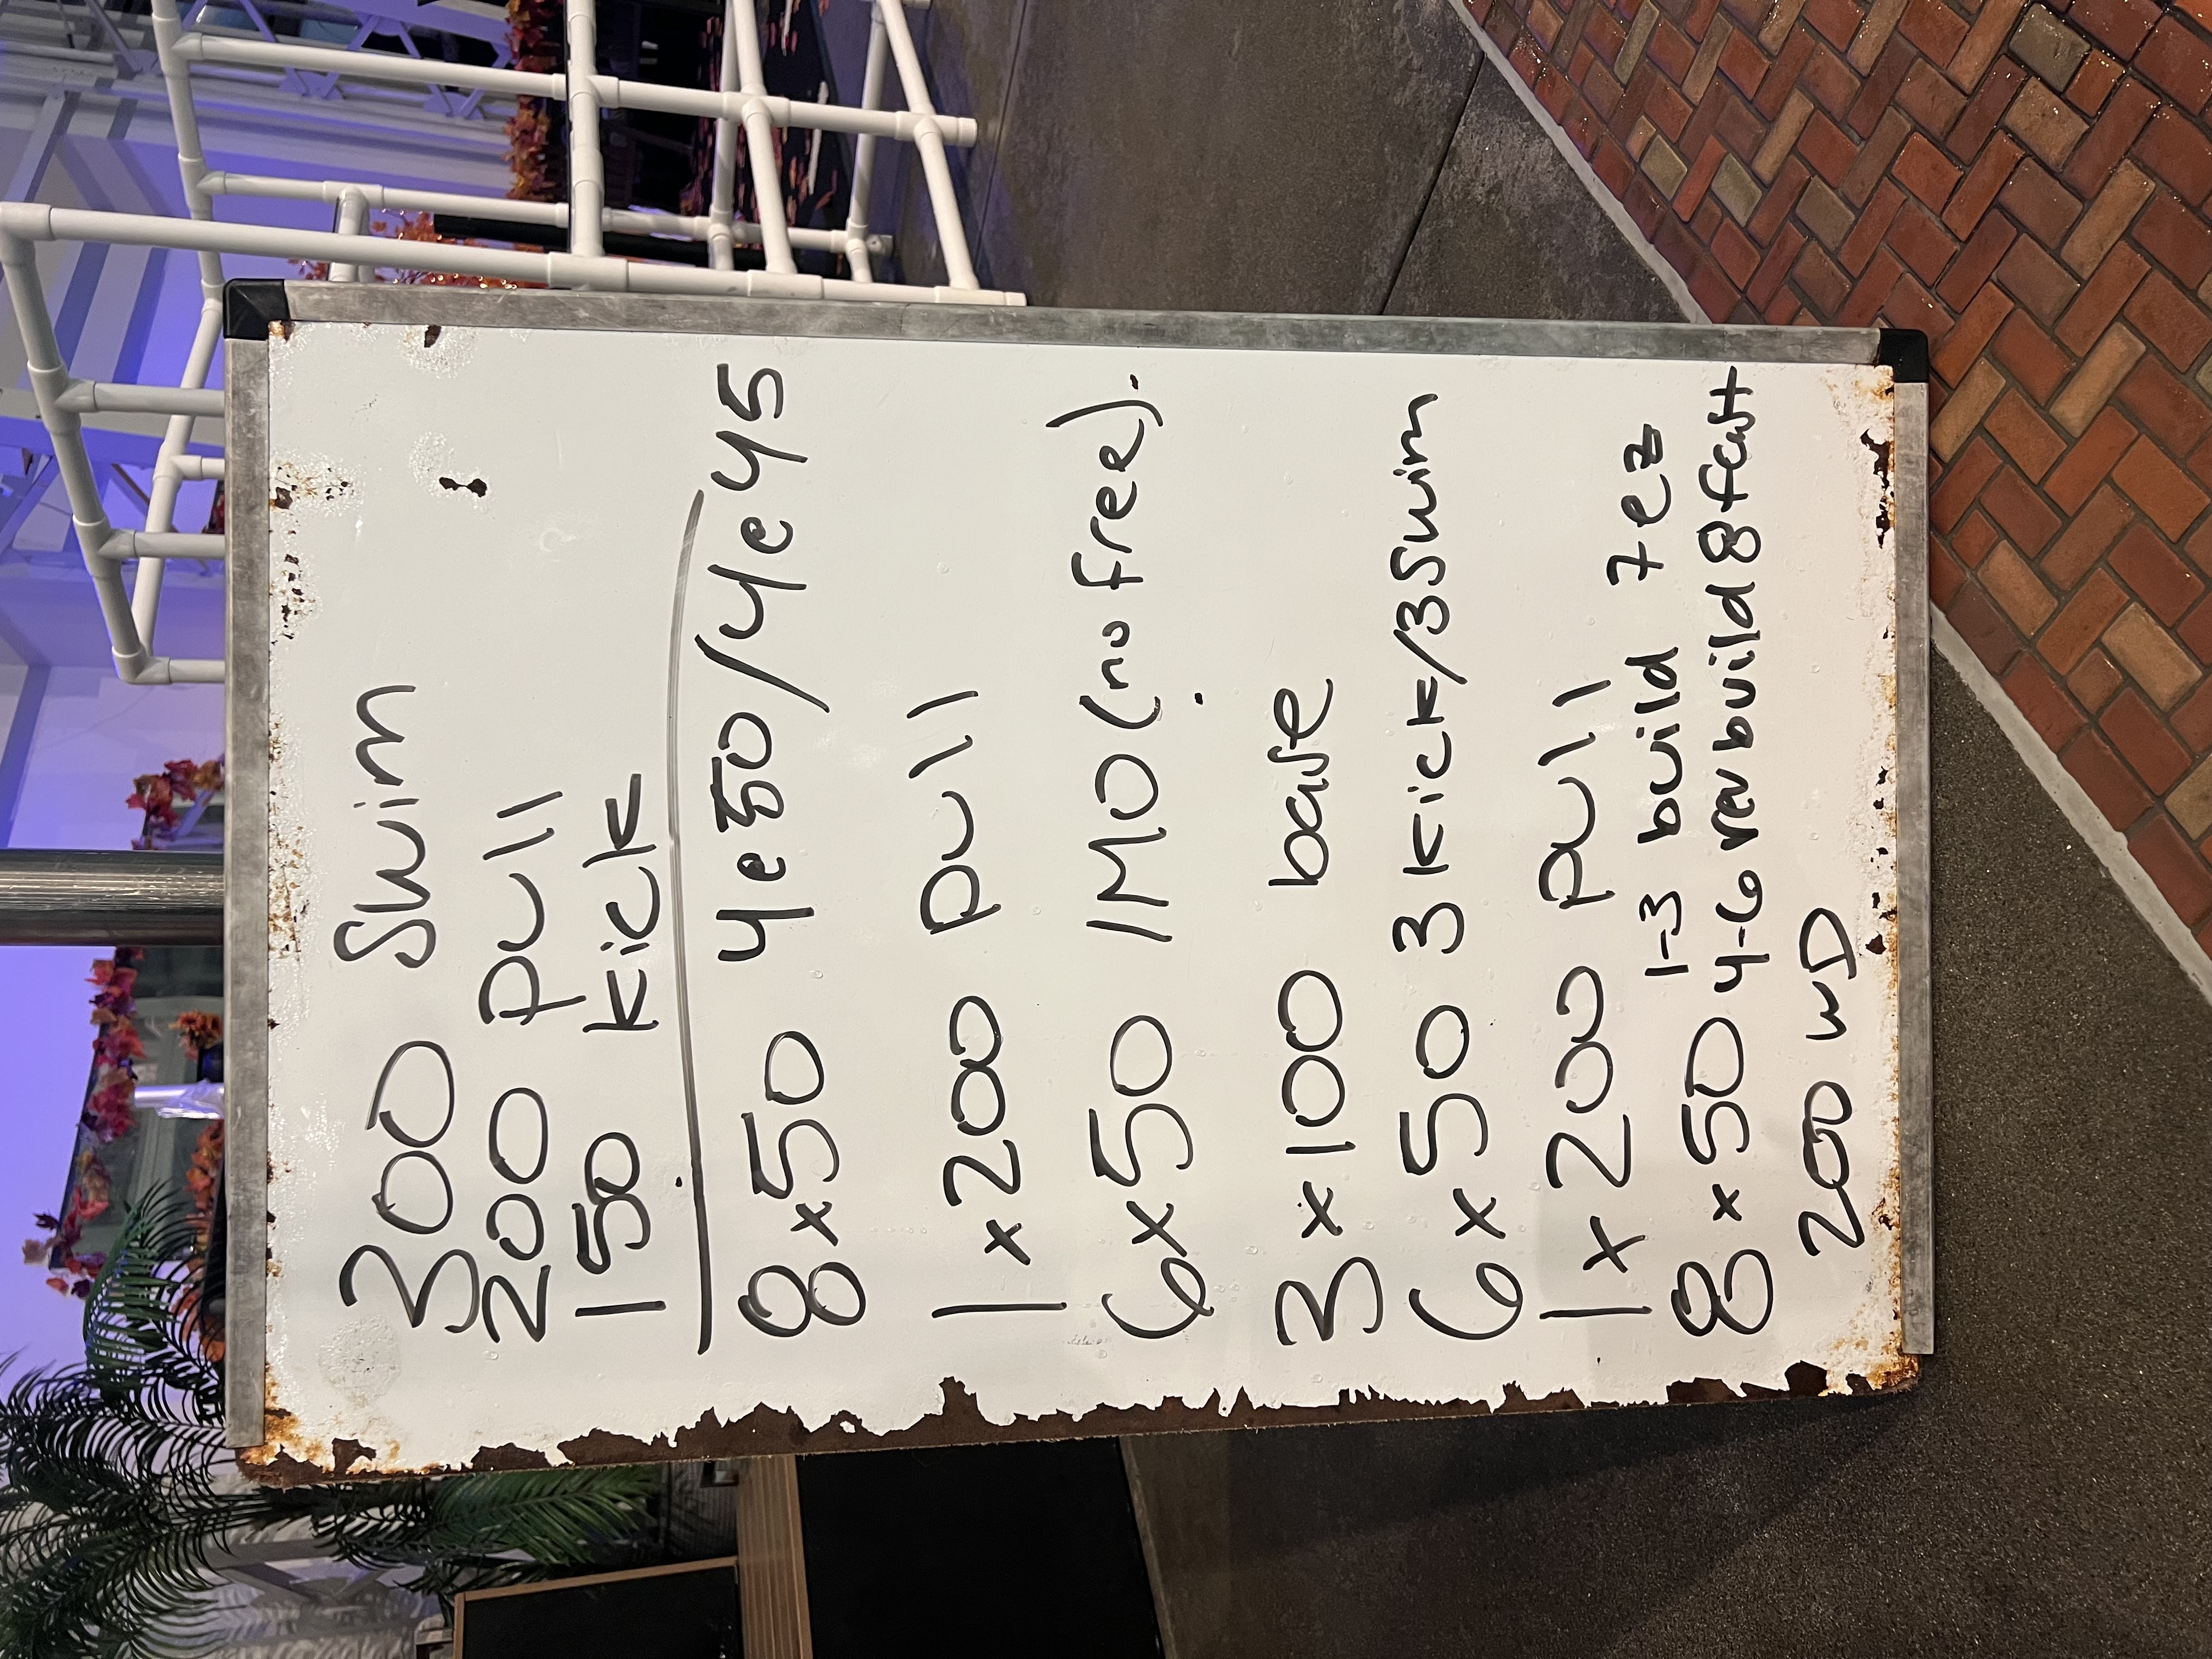 300 Swim
200 pull
150 kick
8x50 4e50/4e45
1x200 pull
6x50 IMO (no free).
3x100 base
6x50 3kick/3Swim
1x200 pull
1-3 build 7ez
8x50 4-6 rev build 8 fast
200 WD